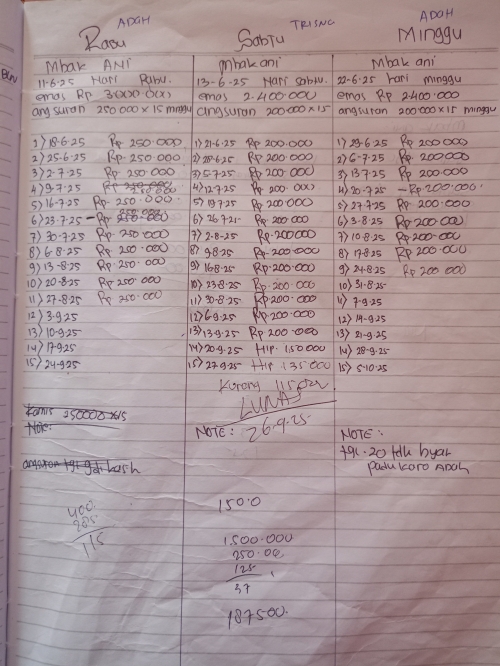 ADAH
Rabu
Mbak ANI
11-6-25 Hari Rabu.
emas Rp 3.000.000
angsuran 250 000 x 15 minggu
1) 18-6-25 Rp 250.000
2) 25-6-25 Rp 250.000
3) 2-7-25 Rp 250.000
4) 9-7-25 Rp 250.000
5) 16-7-25 Rp. 250.000
6) 23.7.25 Rp 250.000
7) 30-7.25 Rp. 250.000
8) 6-8-25 Rp. 250.000
9) 13-8-25 Rp. 250.000
10) 20-8-25 Rp 250.000
11) 27-8-25 Rp 250.000
12) 3-9.25
13) 10-9.25
14) 17-9.25
15) 24-9.25
Kamis 250000 x15
Note:
400.
115
TRISNO
Sabtu
Mbak ani
13-6-25 Hari Sabtu.
emas 2.400.000
angsuran 200.000 x 15
1) 21-6.25 Rp 200.000
2) 28-6.25 Rp. 200.000
3) 5-7.25 Rp. 200.000
4) 12.7.25 Rp 200.000
5) 19.7.25 Rp 200.000
6) 26.7.25 Rp. 200.000
7) 2-8-25 Rp. 200.000
8) 9-8.25 Rp. 200.000
9) 16-8.25 Rp. 200.000
10) 23-8.25 Rp. 200.000
11) 30-8.25 Rp 200.000
12) 6-9.25 Rp. 200.000
13) 13-9.25 Rp 200.000
14) 20-9.25 Hip. 150.000
15) 27.9.25 Hip 135000
Kurang
LUNAS
NOTE: 26.9.25
1500
1.500.000
250.00
125
37
187500.
ADAH
Minggu
Mbak ani
22-6.25 hari minggu
emas Rp 2.400.000
angsuran 200000 x 15 minggu
1) 29-6.25 Rp 200.000
2) 6-7.25 Rp 200.000
3) 13.7.25 Rp 200.000
4) 20-7.25 - Rp 200.000.
5) 27.7.25 Rp 200.000
6) 3-8.25 Rp 200.000
7) 10-8.25 Rp 200.000
8) 17-8.25 Rp 200.000
9) 24-8.25 Rp 200 000
10) 31-8.25
11) 7-9.25
12) 14-9.25
13) 21-9.25
14) 28-9.25
15) 5-10.25
NOTE:
tgl. 20 tdk byar
padu karo Adah